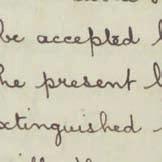 be accepted
he present
xtinguished